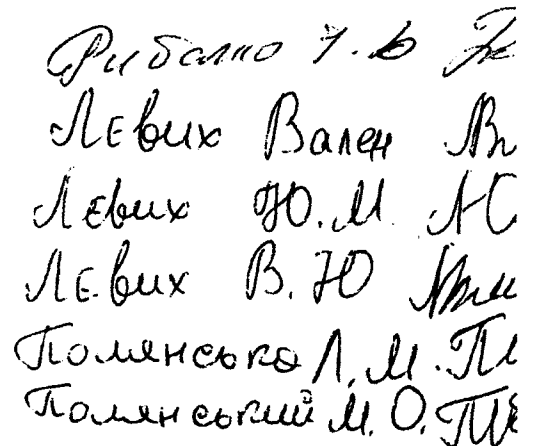 Рибалко
Левих Вален
Левих Ю.М.
Левих В.Ю
Полянська Л.М.
Полянський М.О.